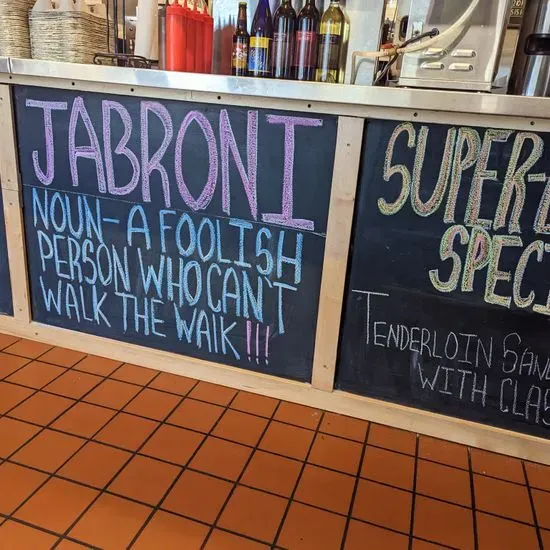 JABRONI
NOUN- A FOOLISH
PERSON WHO CAN'T
WALK THE WALK!!!
SPEC
TENDERLOIN
WITH